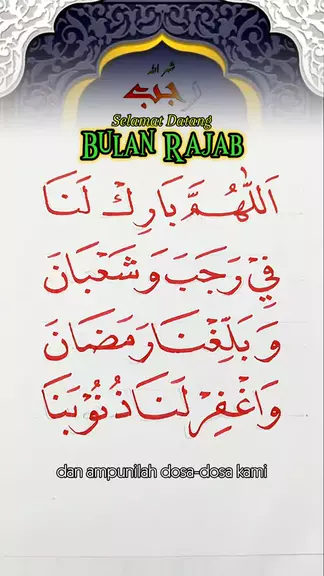 شهر الله
رجب
Selamat Datang
BULAN RAJAB
اَللّٰهُمَّ بَارِكْ لَنَا
فِيْ رَجَبَ وَشَعْبَانَ
وَبَلِّغْنَا رَمَضَانَ
وَاغْفِرْ لَنَا ذُنُوْبَنَا
dan ampunilah dosa-dosa kami